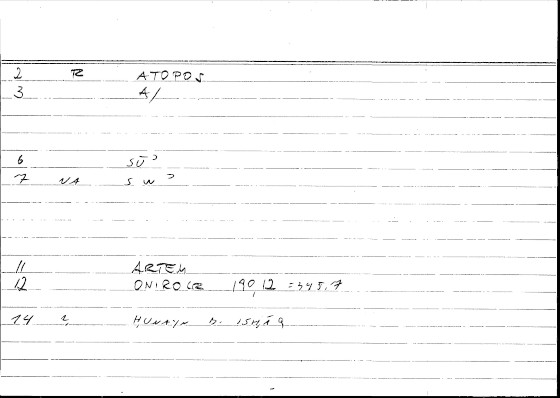 2 R ATOPOS
3 A/
6 SŪʾ
7 NA SWʾ
11 ARTEM
12 ONIROCR 190,12 = 345,7
14 2, ḤUNAYN B. ISḤĀQ